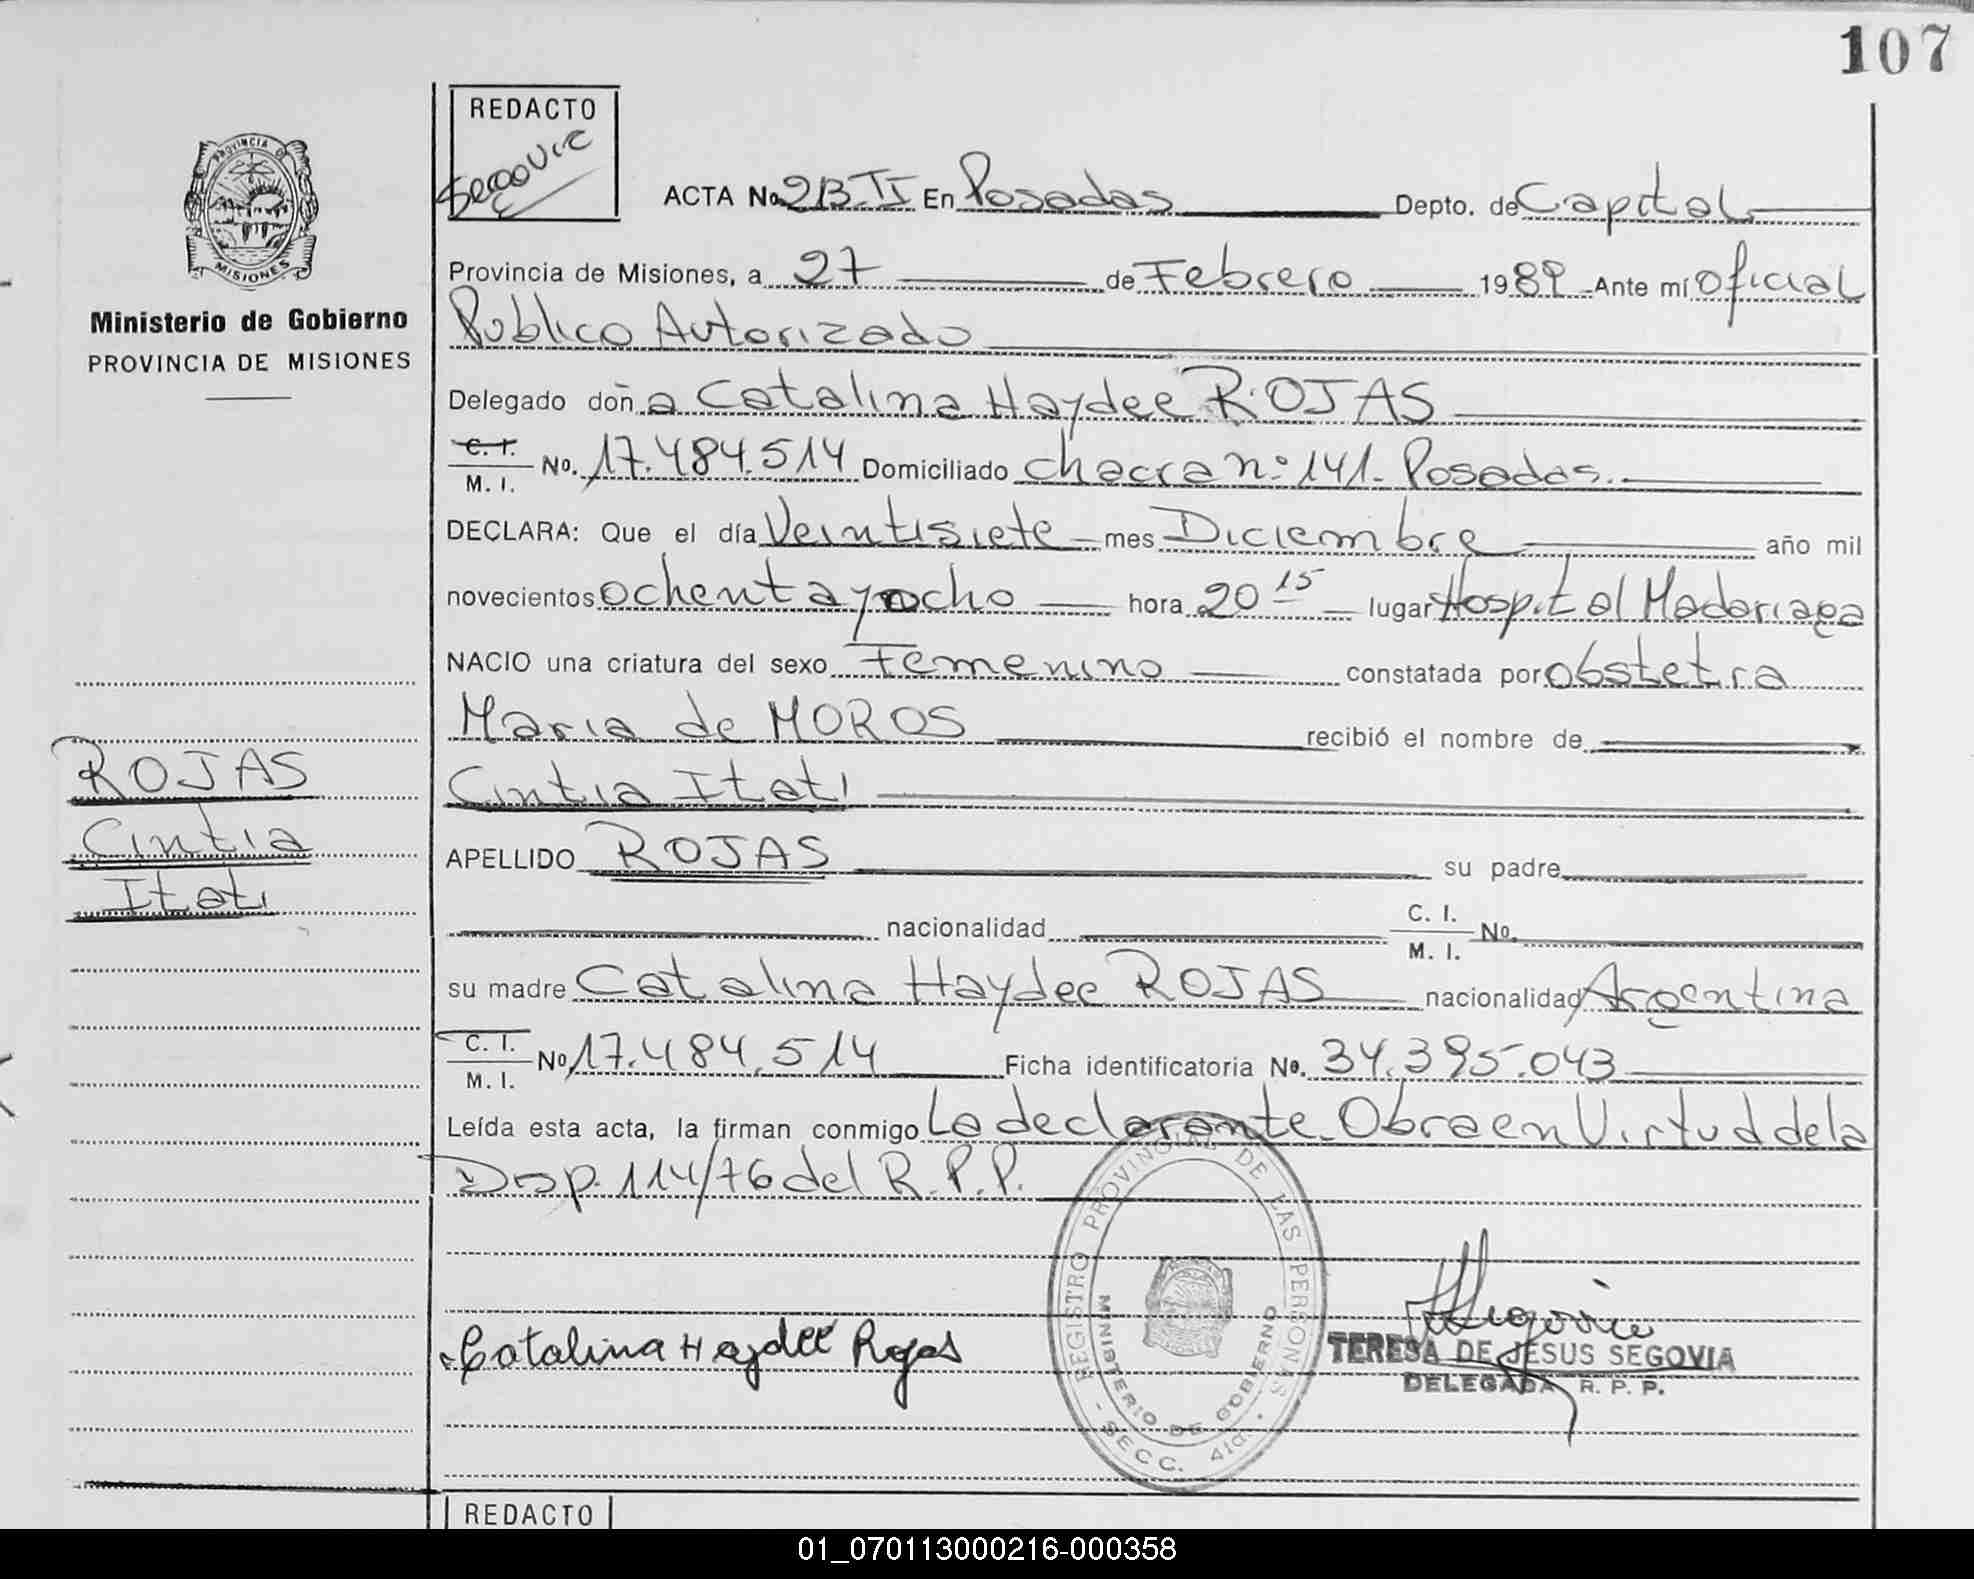 107
REDACTO
Segovia
PROVINCIA DE
MISIONES
Ministerio de Gobierno
PROVINCIA DE MISIONES
ACTA No. 213. II En Posadas Depto. de Capital
Provincia de Misiones, a 27 de Febrero 1989 Ante mí Oficial
Publico Autorizado
Delegado doña Catalina Haydee ROJAS
C. I.
M. I. No. 17.484.514 Domiciliado Chacra nº 141. Posadas.
DECLARA: Que el día Veintisiete mes Diciembre año mil
novecientos ochenta y ocho hora 20 15 lugar Hospital Madariaga
NACIO una criatura del sexo Femenino constatada por obstetra
Maria de MOROS recibió el nombre de
Cintia Itati
APELLIDO ROJAS su padre
nacionalidad C. I.
M. I. No.
su madre Catalina Haydee ROJAS nacionalidad Argentina
C. I.
M. I. No 17.484.514 Ficha identificatoria No. 34.395.043
Leída esta acta, la firman conmigo La declarante. Obra en Virtud de la
Disp. 114/76 del R.P.P.
ROJAS
Cintia
Itati
REGISTRO PROVINCIAL DE LAS PERSONAS
MINISTERIO DE GOBIERNO
- SECC. 4ta. -
Catalina Haydeé Rojas
Segovia
TERESA DE JESUS SEGOVIA
DELEGADA R. P. P.
REDACTO
01_070113000216-000358